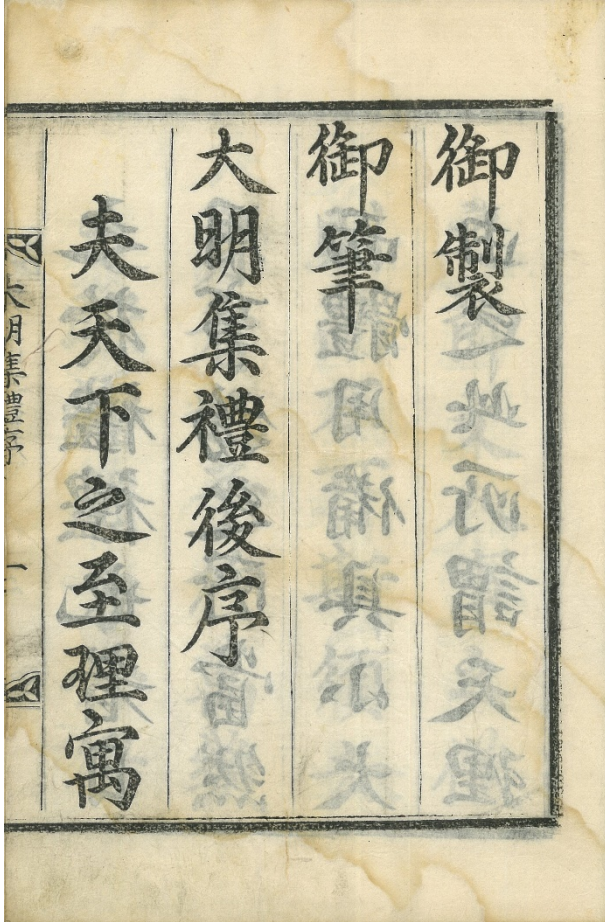 御製
御筆
大明集禮後序
夫天下之至理寓
大明集禮序
一